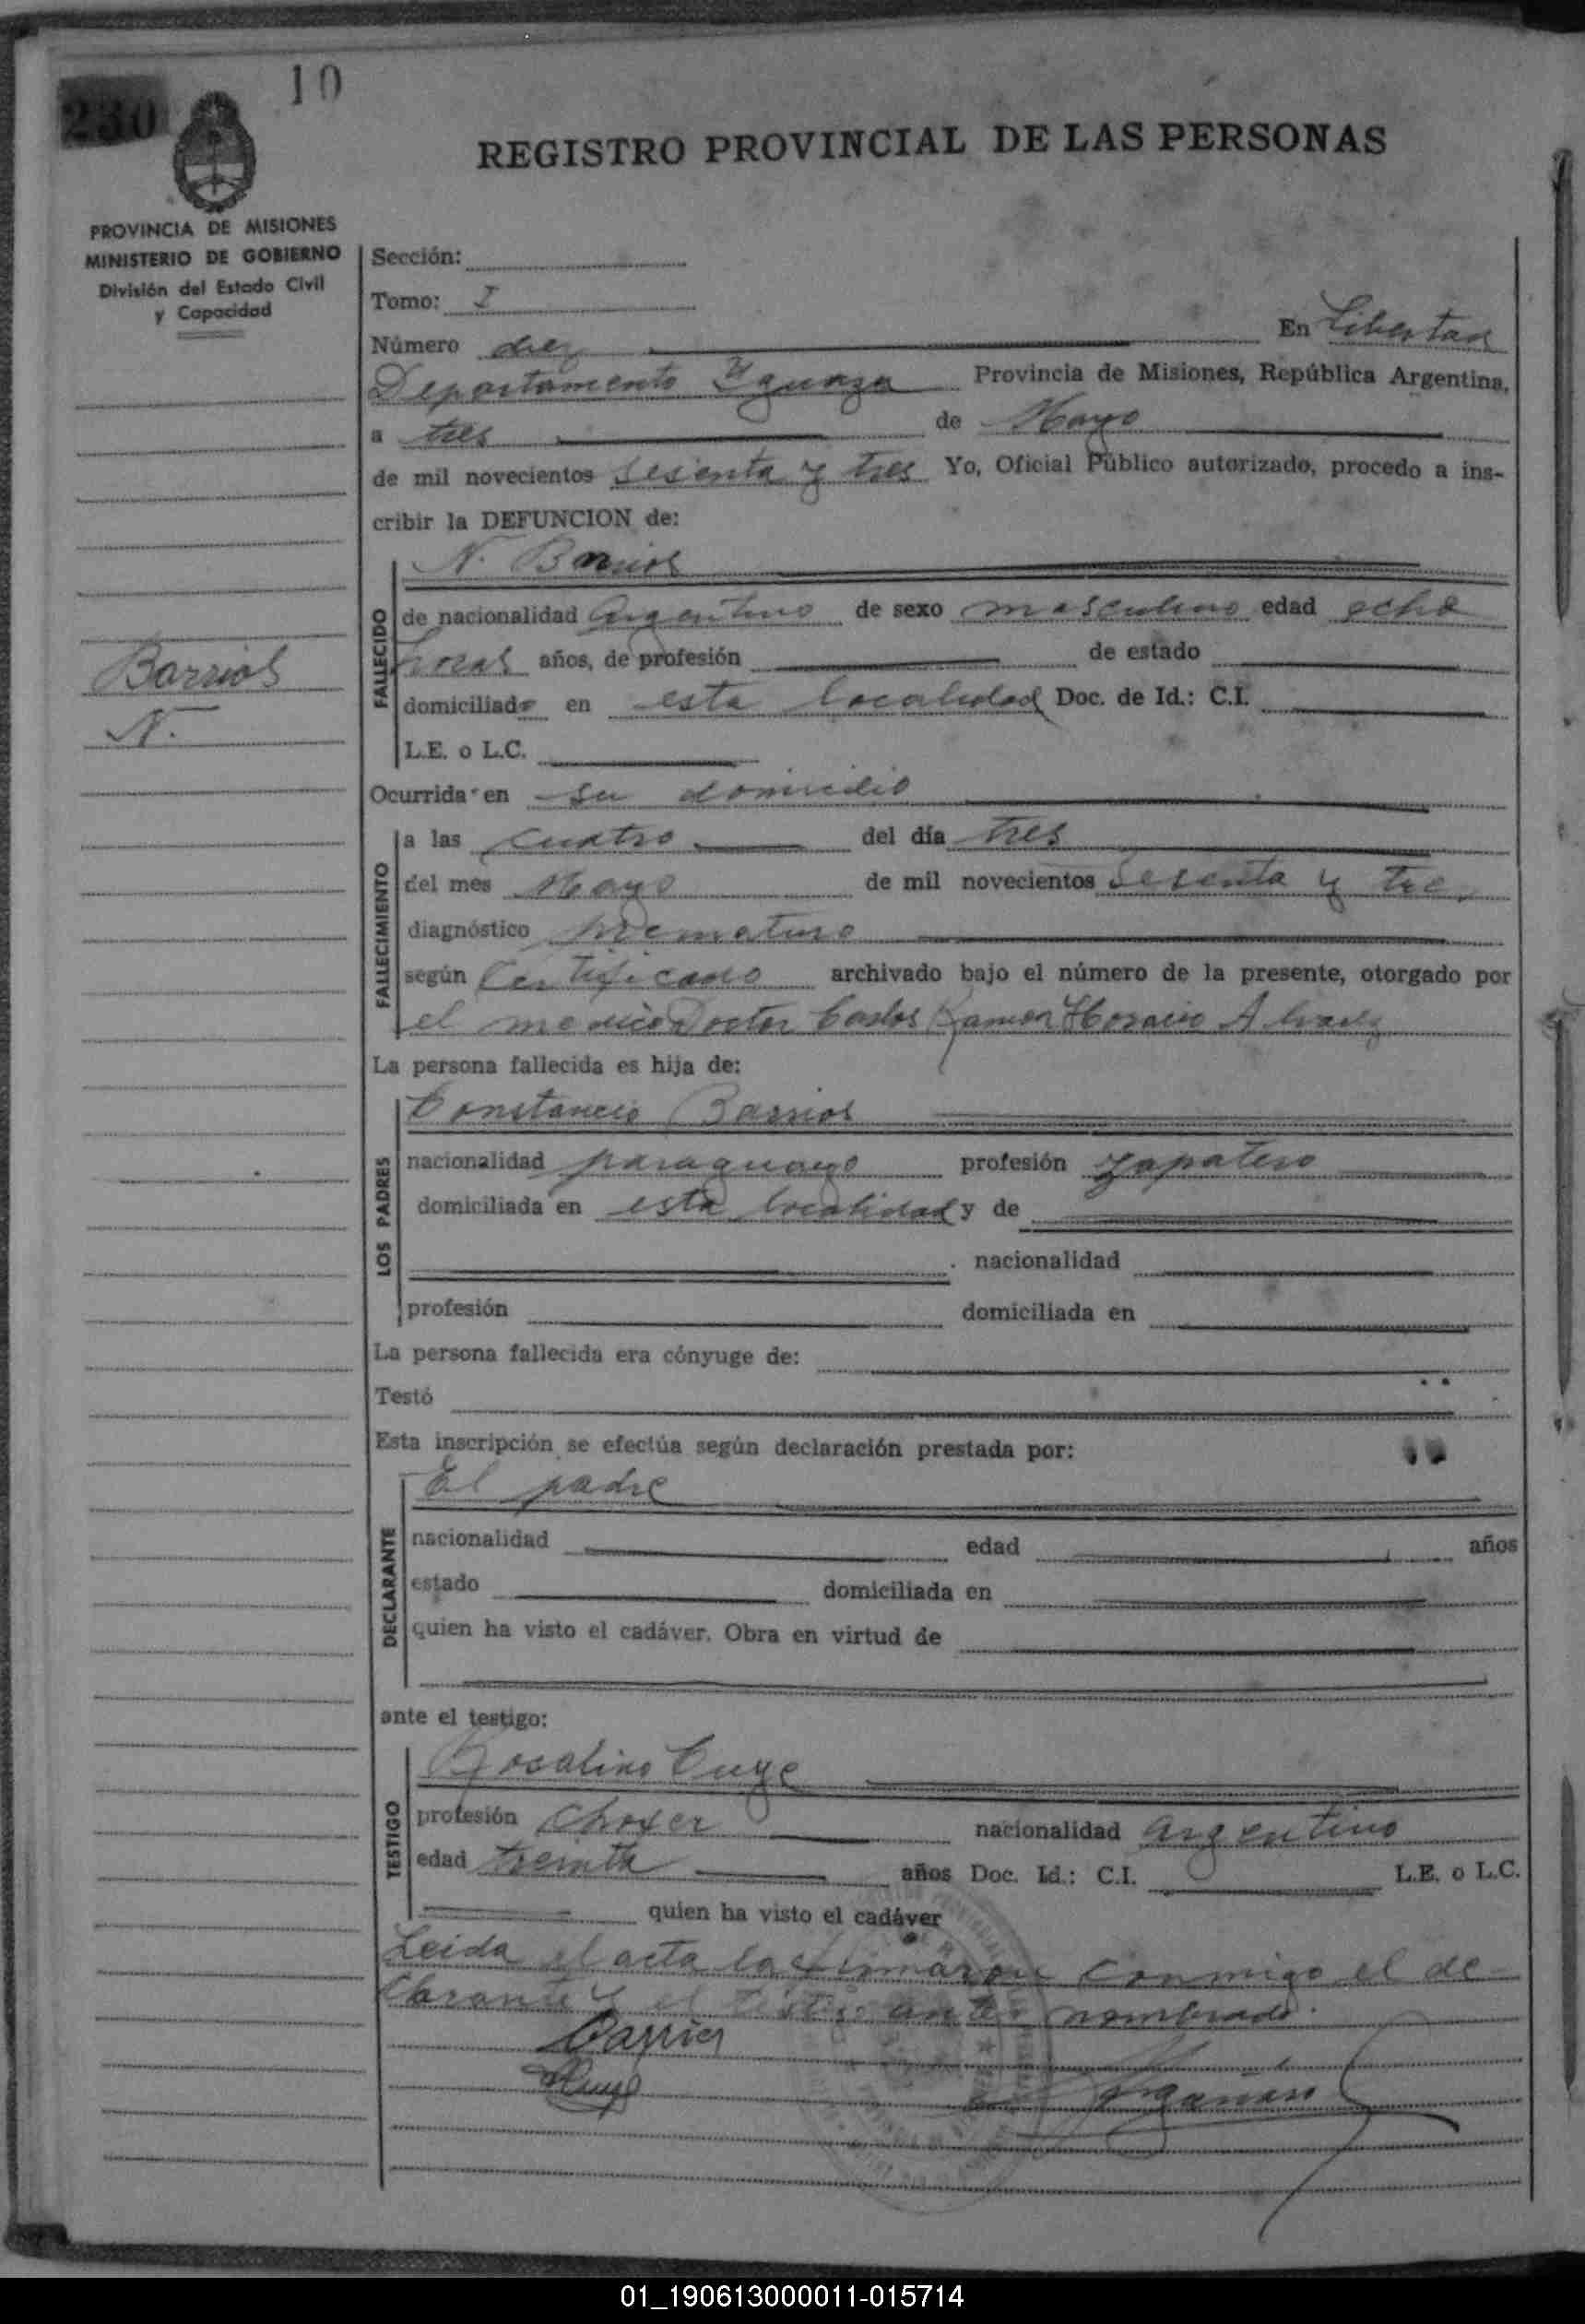 10
230
REGISTRO PROVINCIAL DE LAS PERSONAS
PROVINCIA DE MISIONES
MINISTERIO DE GOBIERNO
División del Estado Civil
y Capacidad
Sección:
Tomo: I
Número diez En Libertad
Departamento Iguazu Provincia de Misiones, República Argentina,
a tres de Mayo
de mil novecientos sesenta y tres Yo, Oficial Público autorizado, procedo a ins-
cribir la DEFUNCION de:
N. Barrios
FALLECIDO
de nacionalidad Argentino de sexo masculino edad ocho
horas años, de profesión de estado
domiciliado en esta localidad Doc. de Id.: C.I.
L.E. o L.C.
Barrios
N.
Ocurrida en su domicilio
FALLECIMIENTO
a las cuatro del día tres
del mes Mayo de mil novecientos sesenta y tres
diagnóstico prematuro
según Certificado archivado bajo el número de la presente, otorgado por
el medico Doctor Carlos Ramon Horacio Alvarez
La persona fallecida es hija de:
LOS PADRES
Constancio Barrios
nacionalidad paraguayo profesión zapatero
domiciliada en esta localidad y de
nacionalidad
profesión domiciliada en
La persona fallecida era cónyuge de:
Testó
Esta inscripción se efectúa según declaración prestada por:
DECLARANTE
El padre
nacionalidad edad años
estado domiciliada en
quien ha visto el cadáver. Obra en virtud de
ante el testigo:
TESTIGO
Rosalino Cuye
profesión Chofer nacionalidad argentino
edad treinta años Doc. Id.: C.I. L.E. o L.C.
quien ha visto el cadáver
Leida el acta la firmaron conmigo el de-
clarante y el testigo antes nombrado.
Barrios
01_190613000011-015714